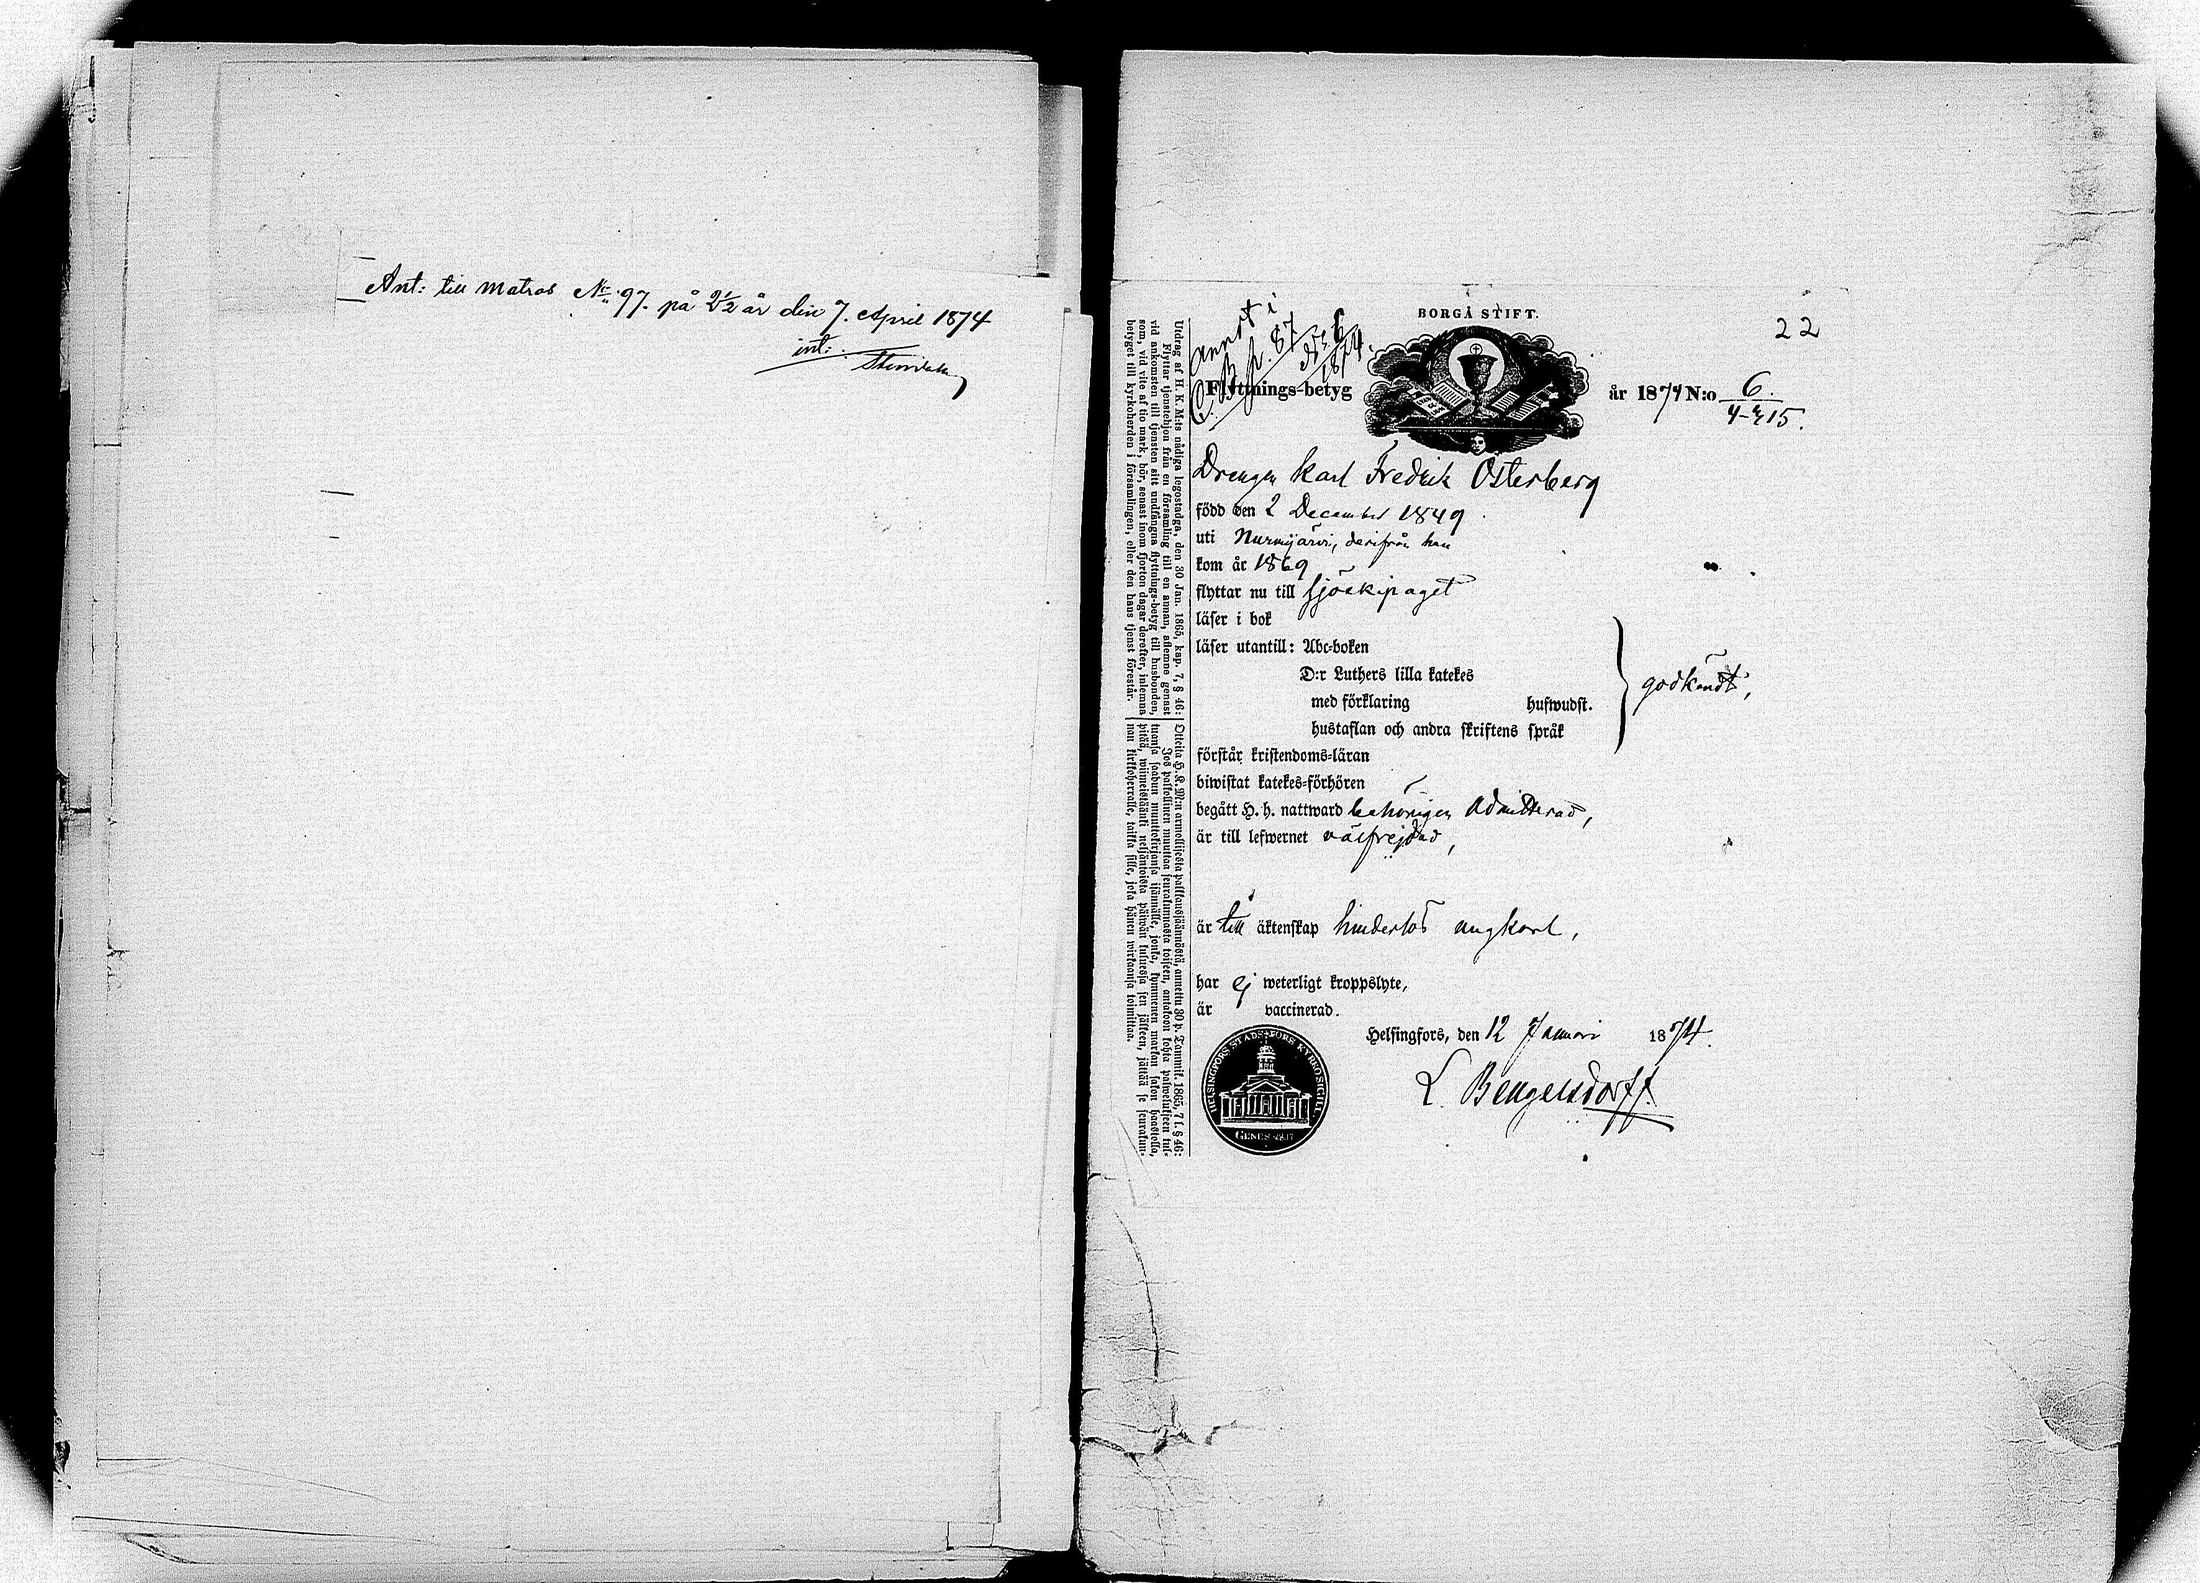 Ant: till matros No 97. på 2½ år den 7. April 1874
int:
BORGÅ STIFT.
22
annot i
C. B. p. 87
No 6
1874.
Flyttnings-betyg
år 1874 N:o 6.
4-415.
Drengen Karl Fredrik Österberg
född den 2 December 1849
uti Nurmijärvi, derifrån han
kom år 1869
flyttar nu till sjöekipaget
läser i bok
läser utantill: Abc-boken
D:r Luthers lilla katekes
med förklaring huswudst.
hustaflan och andra skriftens språk
godkändt,
förstår kristendoms-läran
biwistat katekes-förhören
begått H. h. nattward behörigen admitterad,
är till lefwernet välfrejdad,
är till äktenskap hinderlös ungkarl,
har ej weterligt kroppslyte,
är vaccinerad.
Helsingfors, den 12 Januari 1874.
L. Bengelsdorff.
HELSINGFORS STADS FÖRS KYRKO SIGILL
Utdrag af H. K. M:ts nådiga legostadga, den 30 Jan. 1865, kap. 7, § 46:
Flyttar tjenstehjon från en församling till en annan, aflemne genast
vid ankomsten till tjensten sitt undfångna flyttnings-betyg till husbonden,
som, vid vite af tio mark, bör, senast inom fjorton dagar derefter, inlemna
betyget till kyrkoherden i församlingen, eller den hans tjenst förestår.
Otteita H. K. M:n armollisesta palkkaussäännöstä, annettu 30 p. Tammik. 1865, 7 l. § 46:
Jos palkollinen muuttaa seurakunnasta toiseen, antakoon kohta palwelukseen tul-
tuansa saadun muuttokirjansa isännälle, jonka, kymmenen markan sakon haastolla,
pitää, wiimeistäänki neljäntoista päiwän kuluessa sen jälkeen, jättää se seurakun-
nan kirkkoherralle, taikka sille, joka hänen wirkaansa toimittaa.